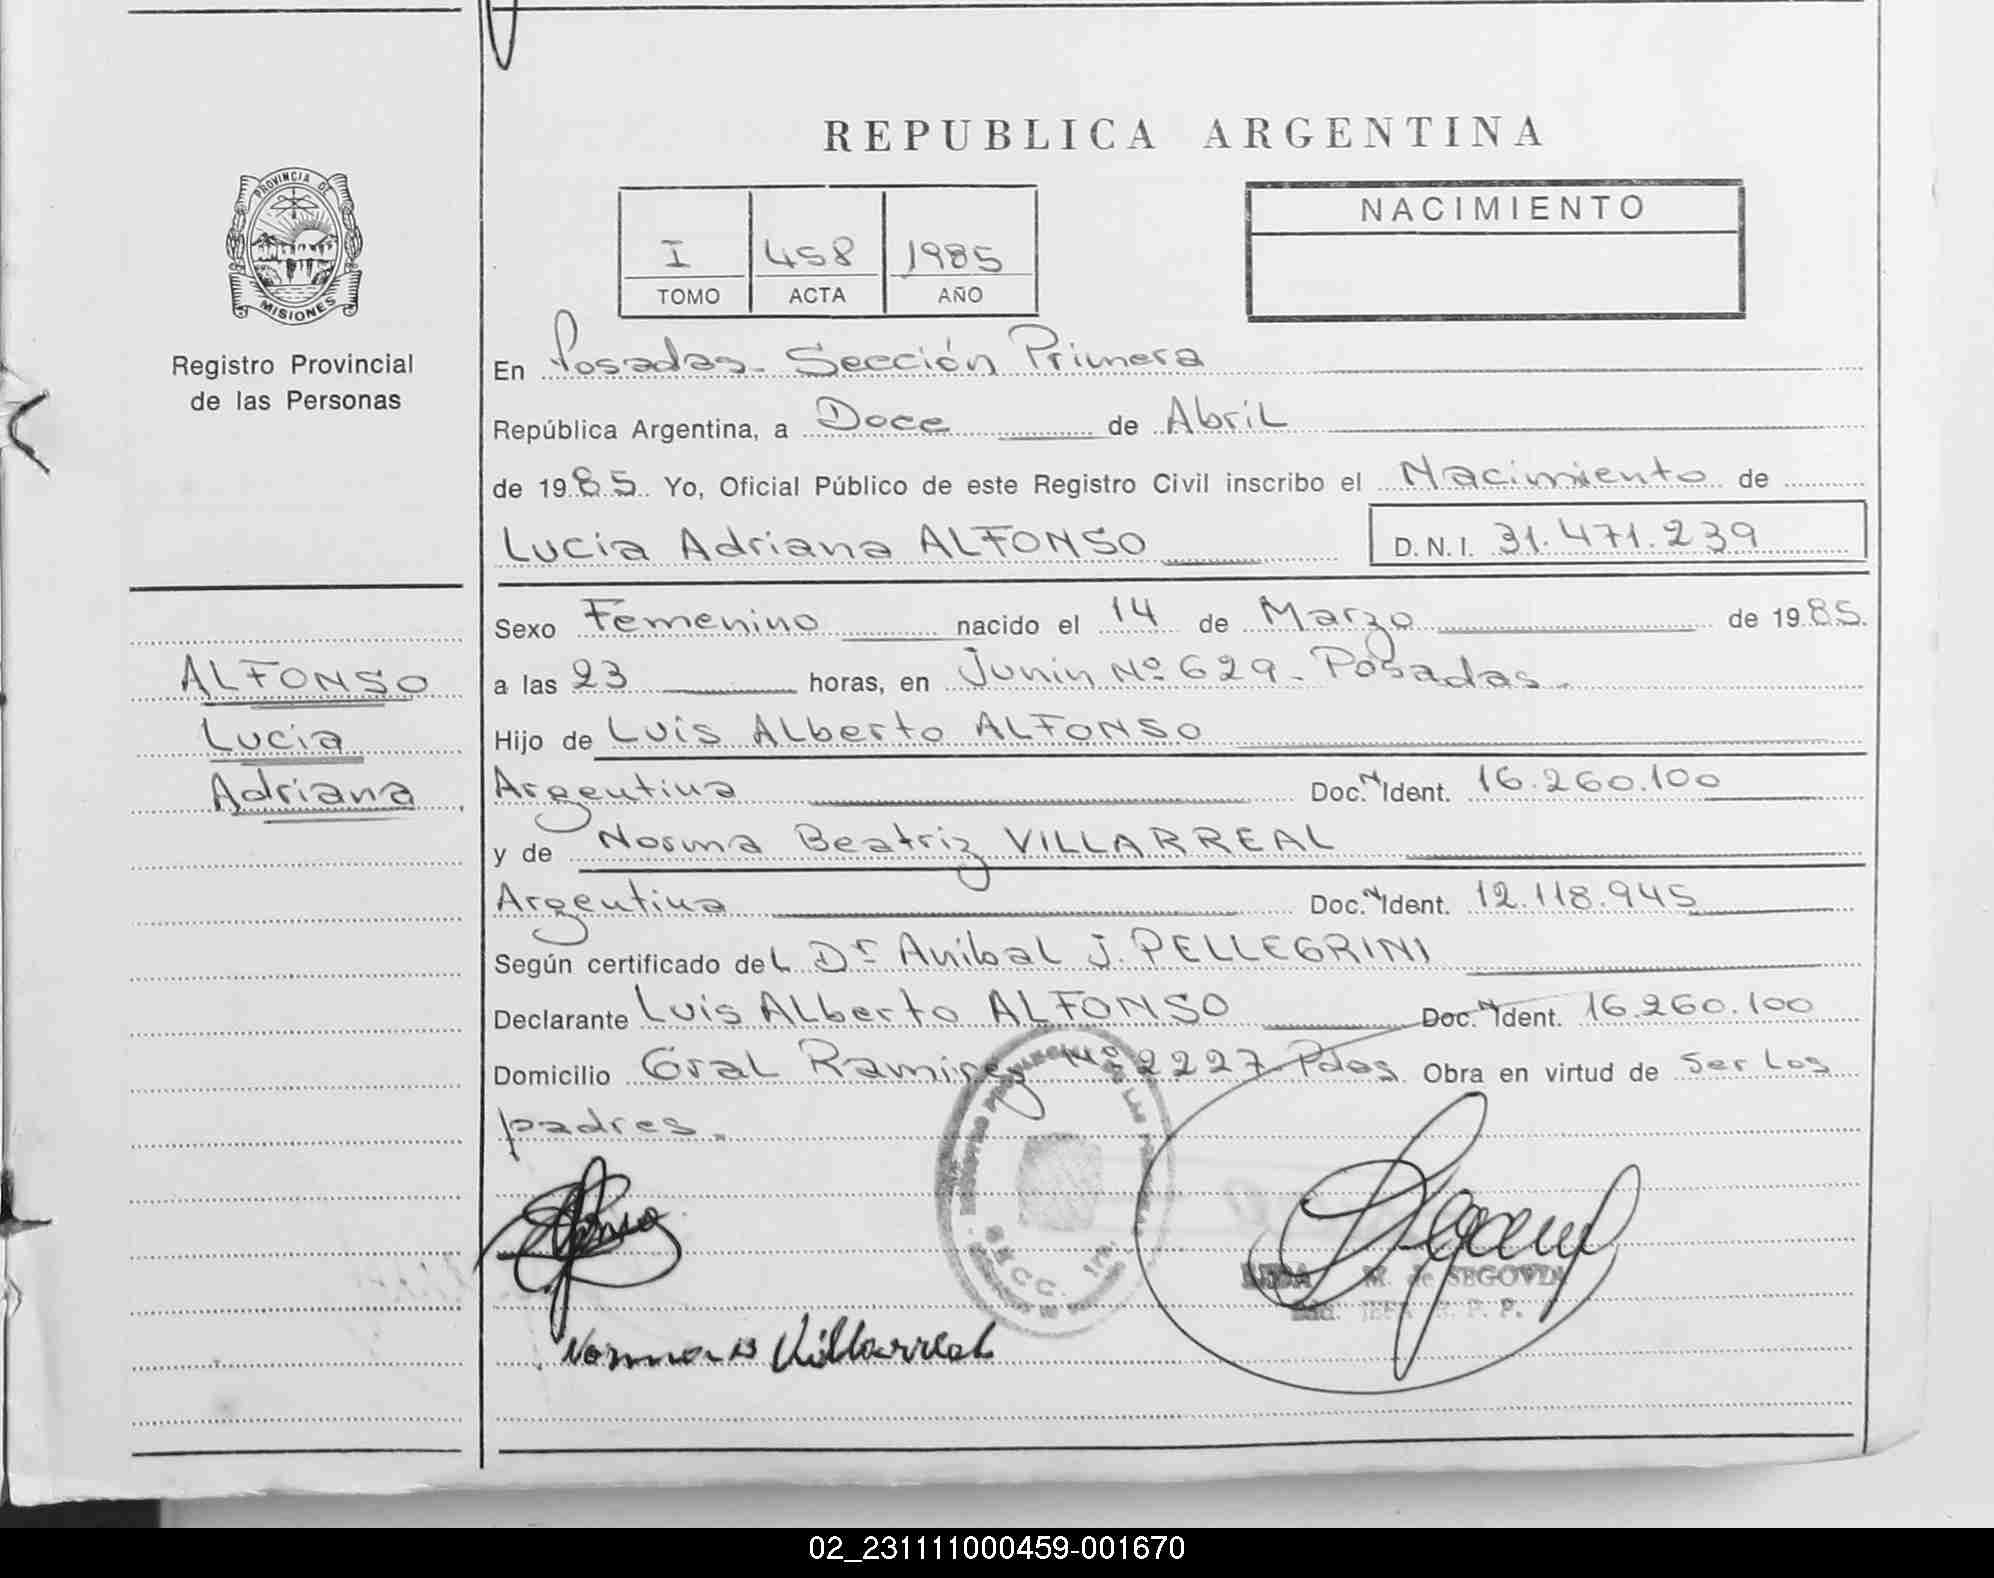 REPUBLICA ARGENTINA
PROVINCIA DE
MISIONES
Registro Provincial
de las Personas
I 458 1985
TOMO ACTA AÑO
NACIMIENTO
En Posadas. Sección Primera
República Argentina, a Doce de Abril
de 1985. Yo, Oficial Público de este Registro Civil inscribo el Nacimiento de
Lucia Adriana ALFONSO D.N.I. 31.471.239
Sexo Femenino nacido el 14 de Marzo de 1985.
ALFONSO
Lucia
Adriana
a las 23 horas, en Junin Nº 629. Posadas.
Hijo de Luis Alberto ALFONSO
Argentina Doc. N Ident. 16.260.100
y de Norma Beatriz VILLARREAL
Argentina Doc. N Ident. 12.118.945
Según certificado del Dr Anibal J. PELLEGRINI
Declarante Luis Alberto ALFONSO Doc. N Ident. 16.260.100
Domicilio Gral Ramirez Nº 2227 Pdas Obra en virtud de ser los
padres.
SECC. 1ra.
M. de SEGOVIA
Norma B Villarreal
02_231111000459-001670